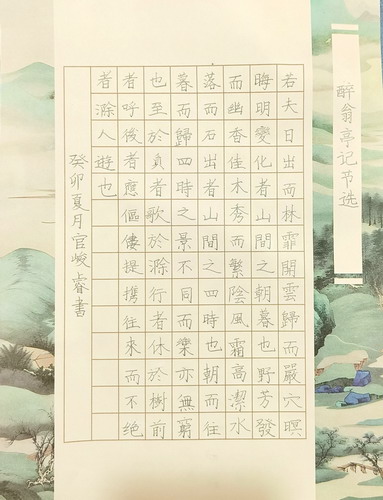 醉翁亭记节选
若夫日出而林霏開雲歸而嚴穴暝
晦明變化者山間之朝暮也野芳發
而幽香佳木秀而繁陰風霜高潔水
落而石出者山間之四時也朝而往
暮而歸四時之景不同而樂亦無窮
也至於負者歌於滁行者休於樹前
者呼後者應傴僂提携往來而不绝
者滁人遊也
癸卯夏月官峻睿書